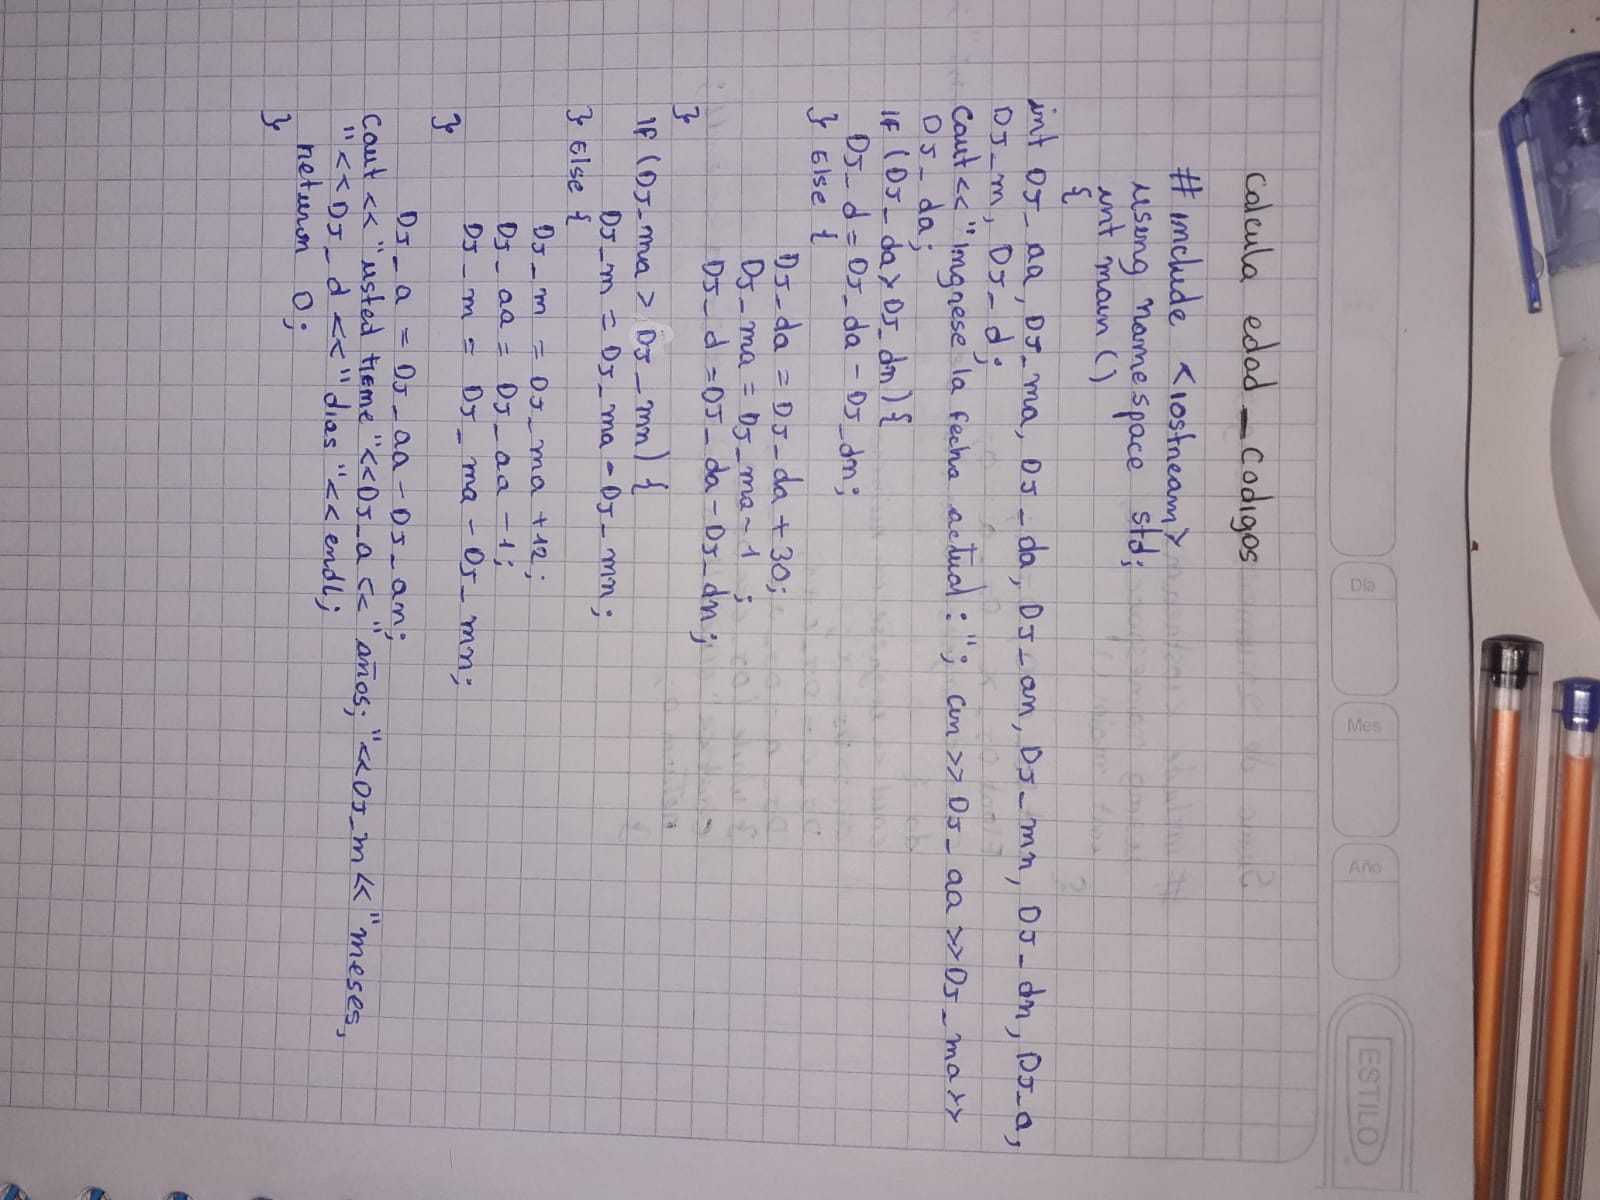 Día
Mes
Año
ESTILO
Calcula edad _ Codigos
# include <iostream>
using namespace std;
int main ()
{
int DJ_aa, DJ_ma, DJ_da, DJ_an, DJ_mn, DJ_dn, DJ_a,
DJ_m, DJ_d;
Cout << "Ingrese la fecha actual : "; cin >> DJ_aa >> DJ_ma >>
DJ_da;
If (DJ_da > DJ_dn) {
DJ_d = DJ_da - DJ_dn;
} Else {
DJ_da = DJ_da + 30;
DJ_ma = DJ_ma - 1 ;
DJ_d = DJ_da - DJ_dn;
}
If (DJ_ma > DJ_mn) {
DJ_m = DJ_ma - DJ_mn;
} Else {
DJ_m = DJ_ma + 12;
DJ_aa = DJ_aa - 1;
DJ_m = DJ_ma - DJ_mn;
}
DJ_a = DJ_aa - DJ_an;
Cout << "usted tiene " << DJ_a << " años; " << DJ_m << "meses,
" << DJ_d << " dias " << endl;
return 0;
}